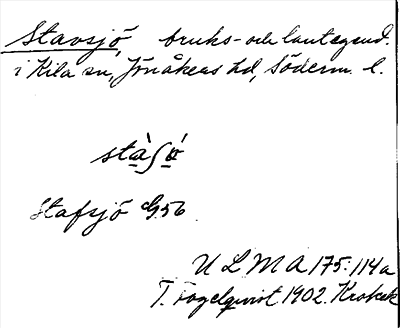 Stavsjö, bruks- och lantegend.
i Kila sn, Jönåkers hd, Söderm. l.
stàʃö́
Stafsjö G56
U L M A 175:114a
T. Fogelqvist 1902. Krokek